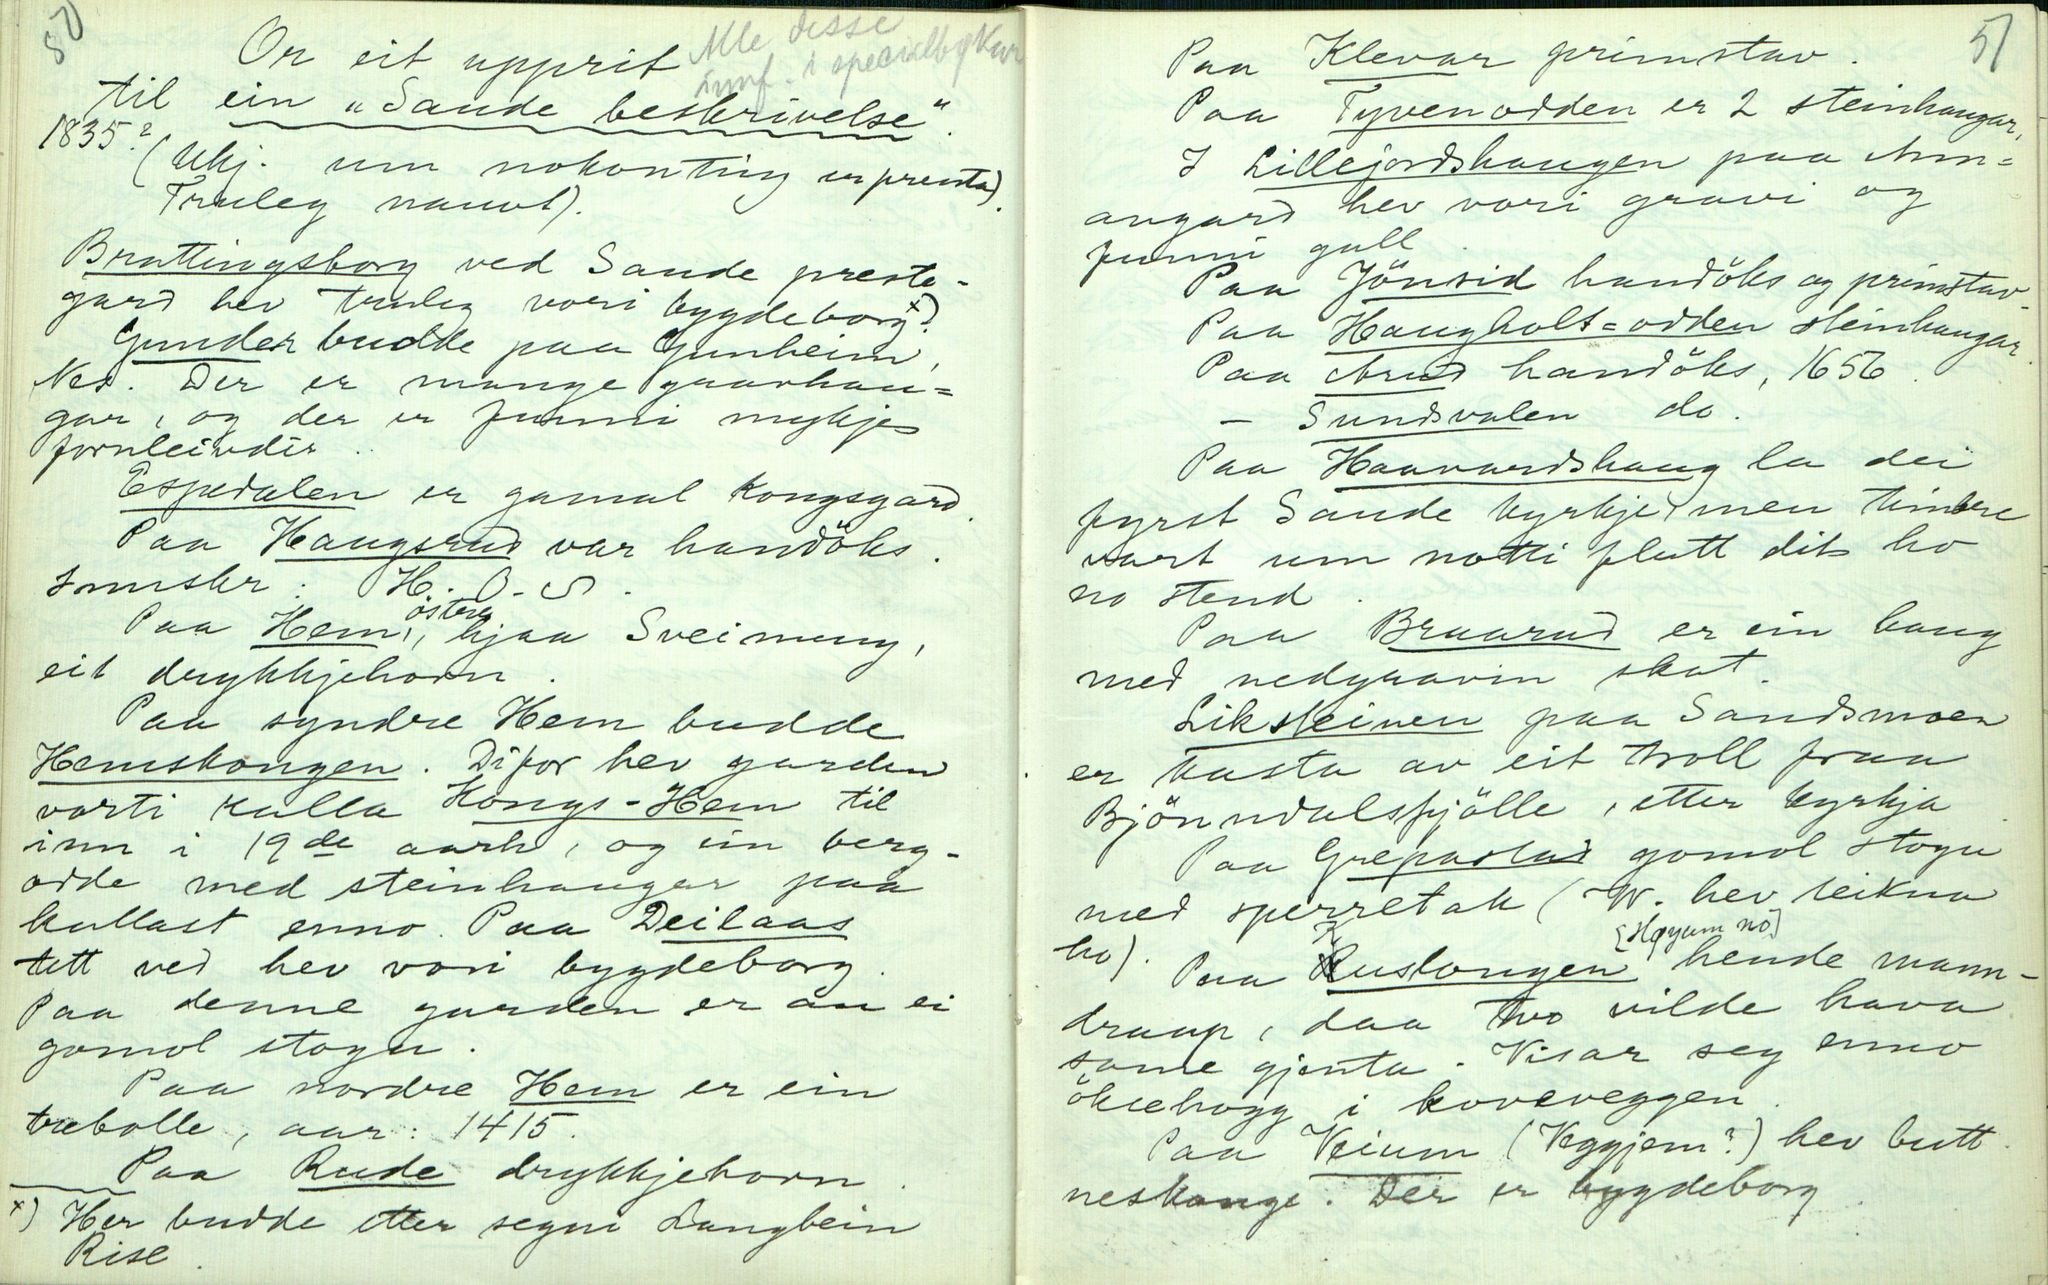 50
Or eit upprit
Alle disse
innf. i specialbøker
til ein "Sande beskrivelse".
1835?
(Ukj. um nokonting er prenta).
Truleg nauvt).
Bruttingsborg ved Sande preste-
gard hev truleg vori bygdeborg x)?
Gunder budde paa Gunheim,
Nes. Der er mange gravhau=
gar, og der er funni mykje
fornleivdir.
Espedalen er gamal kongsgard.
Paa Haugsrud var handöks.
Innskr: H. O. S.
Paa Hem, östere, hjaa Sveinung,
eit drykkjehorn.
Paa syndre Hem budde
Hemskongen. Difor hev garden
vorti kalla Kongs-Hem til
inn i 19de aarh, og ein berg-
odde med steinhaugar paa
kallast enno. Paa Deilaas
tett ved hev vori bygdeborg.
Paa denne garden er än ei
gomol stogu.
Paa nordre Hem er ein
trebolle, aar: 1415.
Paa Rude drykkjehorn.
x) Her budde etter segni Langbein
Rise.
51
Paa Klevar primstav.
Paa Tyvenodden er 2 steinhaugar.
I Lillejordshaugen paa Ann=
angard hev vori gravi og
funni gull.
Paa Jönsid handöks og primstav.
Paa Haugholt=odden steinhaugar.
Paa Arud handöks, 1656.
- Sundsvalen do.
Paa Haavardshaug la dei
fyrst Sande kyrkje men timbre
vart um notti flutt dit ho
no stend.
Paa Braarud er ein haug
med nedgravin skat.
Liksteinen paa Sandsmoen
er kasta av eit troll fraa
Bjönndalsfjölle, etter kyrkja.
Paa Grepastad gomol stogu
med sperretak (W. hev teikna
ho).
[Høyum no]
Paa Rustangen hende mann-
draap, daa tvo vilde hava
same gjenta. Visar seg enno
öksehogg i koveveggen.
Paa Veium (Veggjem?) hev butt
neskonge. Der er bygdeborg.